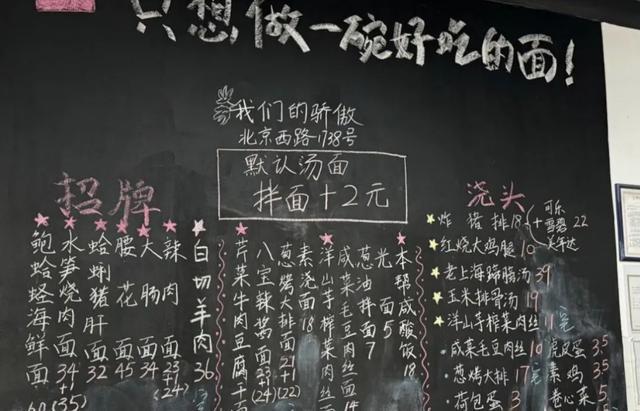 只想做一碗好吃的面！
我们的骄傲
北京西路1738号
默认汤面
拌面+2元
招牌
鲍蛤蛏海鲜面 60
水笋烧肉面 34+1(35)
蛤蜊猪肝面 32
腰花面 45
大肠面 34
辣肉面 23+1(24)
白切羊肉 36
芹菜牛肉豆腐干
八宝辣酱面 21+1(22)
葱烤大排面 23+1(24)
素浇面 18
洋山芋榨菜肉丝面
咸菜毛豆肉丝面 14
葱油拌面 7
光面 5
本帮咸酸饭 18
浇头
炸猪排 18 + 可乐 雪碧 22
红烧大鸡腿 10
老上海蹄髈汤 39
玉米排骨汤 19
洋山芋榨菜肉丝 11
咸菜毛豆肉丝 10
葱烤大排 17
荷包蛋 3
虎皮蛋 3.5
素鸡 3.5
卷心菜 5